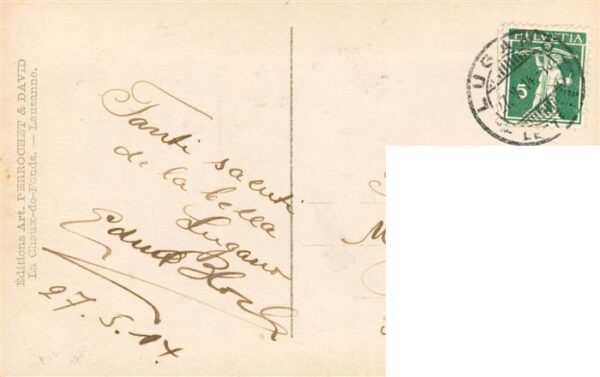 Éditions Art. PERROCHET & DAVID
La Chaux-de-Fonds. — Lausanne.
Tanti saluti
de la bella
Lugano
Bloch
27. 5. 14.
HELVETIA
5
LUGANO
M